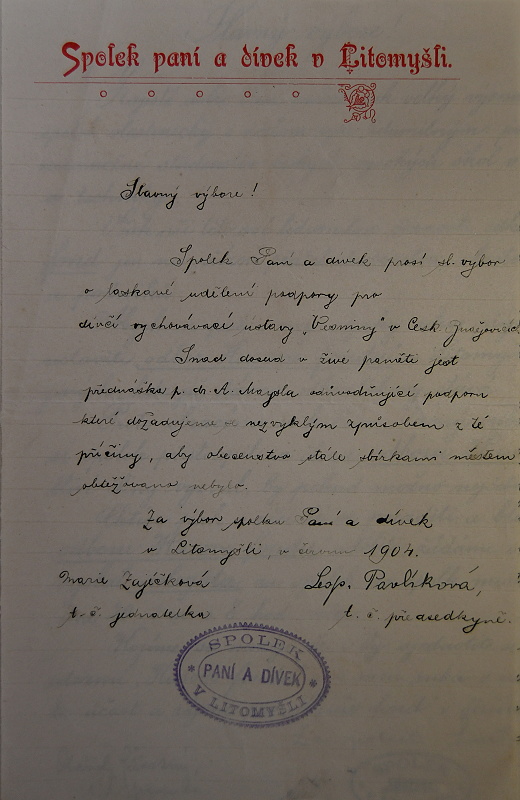 Spolek paní a dívek v Litomyšli.
Slavný výbore!
Spolek Paní a dívek prosí sl. výbor
o laskavé udělení podpory pro
dívčí vychovávací ústavy „Vesniny" v Česk.
Snad dosud v živé paměti jest
přednáška p. dr. A. Maysla odůvodňující podporu
které dožadujeme se nezvyklým způsobem z té
příčiny, aby obecenstvo stále sbírkami městem
obtěžováno nebylo.
Za výbor spolku Paní a dívek
v Litomyšli, v červnu 1904.
Marie Zajíčková
t. č. jednatelka
Leop. Pavlíková,
t. č. předsedkyně.
SPOLEK
PANÍ A DÍVEK
V LITOMYŠLI